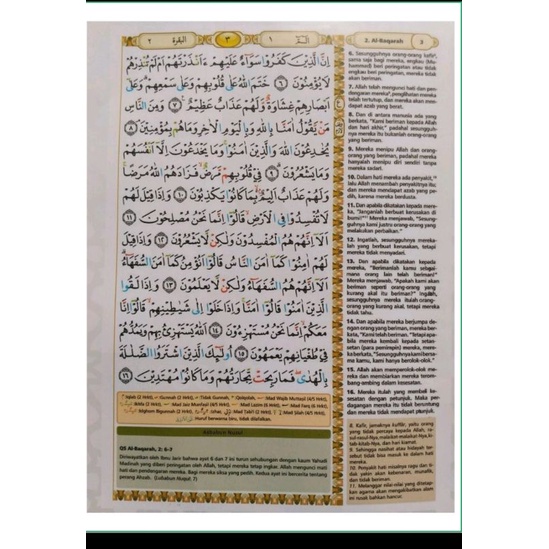 البقرة ٢
٣
الٓمّٓ ١
2. Al-Baqarah
3
اِنَّ الَّذِيْنَ كَفَرُوْا سَوَاۤءٌ عَلَيْهِمْ ءَاَنْذَرْتَهُمْ اَمْ لَمْ تُنْذِرْهُمْ
لَا يُؤْمِنُوْنَ ٦ خَتَمَ اللّٰهُ عَلٰى قُلُوْبِهِمْ وَعَلٰى سَمْعِهِمْ ۗ وَعَلٰٓى
اَبْصَارِهِمْ غِشَاوَةٌ وَّلَهُمْ عَذَابٌ عَظِيْمٌ ٧ وَمِنَ النَّاسِ
مَنْ يَّقُوْلُ اٰمَنَّا بِاللّٰهِ وَبِالْيَوْمِ الْاٰخِرِ وَمَا هُمْ بِمُؤْمِنِيْنَ ٨
يُخٰدِعُوْنَ اللّٰهَ وَالَّذِيْنَ اٰمَنُوْا ۚ وَمَا يَخْدَعُوْنَ اِلَّآ اَنْفُسَهُمْ
وَمَا يَشْعُرُوْنَ ٩ فِيْ قُلُوْبِهِمْ مَّرَضٌ فَزَادَهُمُ اللّٰهُ مَرَضًا ۚ
وَلَهُمْ عَذَابٌ اَلِيْمٌ ۢ بِمَا كَانُوْا يَكْذِبُوْنَ ١٠ وَاِذَا قِيْلَ لَهُمْ
لَا تُفْسِدُوْا فِى الْاَرْضِ قَالُوْٓا اِنَّمَا نَحْنُ مُصْلِحُوْنَ ١١
اَلَآ اِنَّهُمْ هُمُ الْمُفْسِدُوْنَ وَلٰكِنْ لَّا يَشْعُرُوْنَ ١٢ وَاِذَا قِيْلَ
لَهُمْ اٰمِنُوْا كَمَآ اٰمَنَ النَّاسُ قَالُوْٓا اَنُؤْمِنُ كَمَآ اٰمَنَ السُّفَهَاۤءُ ۗ
اَلَآ اِنَّهُمْ هُمُ السُّفَهَاۤءُ وَلٰكِنْ لَّا يَعْلَمُوْنَ ١٣ وَاِذَا لَقُوا
الَّذِيْنَ اٰمَنُوْا قَالُوْٓا اٰمَنَّا ۚ وَاِذَا خَلَوْا اِلٰى شَيٰطِيْنِهِمْ ۙ قَالُوْٓا اِنَّا
مَعَكُمْ ۙ اِنَّمَا نَحْنُ مُسْتَهْزِءُوْنَ ١٤ اَللّٰهُ يَسْتَهْزِئُ بِهِمْ وَيَمُدُّهُمْ
فِيْ طُغْيَانِهِمْ يَعْمَهُوْنَ ١٥ اُولٰۤىِٕكَ الَّذِيْنَ اشْتَرَوُا الضَّلٰلَةَ
بِالْهُدٰىۖ فَمَا رَبِحَتْ تِّجَارَتُهُمْ وَمَا كَانُوْا مُهْتَدِيْنَ ١٦
Asbabun Nuzul
QS Al-Baqarah, 2: 6-7
Diriwayatkan oleh Ibnu Jarir bahwa ayat 6 dan 7 ini turun sehubungan dengan kaum Yahudi
Madinah yang diberi peringatan oleh Allah, tetapi mereka tetap ingkar. Allah mengunci mati
hati dan pendengaran mereka. Bagi mereka siksa yang pedih. Kedua ayat ini bercerita tentang
perang Ahzab. (Lubabun Nuqul: 7)
6. Sesungguhnya orang-orang kafir,
sama saja bagi mereka, engkau (Mu-
hammad) beri peringatan atau tidak
engkau beri peringatan, mereka tidak
akan beriman.
7. Allah telah mengunci hati dan pen-
dengaran mereka, penglihatan mereka
telah tertutup, dan mereka akan men-
dapat azab yang berat.
8. Dan di antara manusia ada yang
berkata, "Kami beriman kepada Allah
dan hari akhir," padahal sesungguh-
nya mereka itu bukanlah orang-orang
yang beriman.
9. Mereka menipu Allah dan orang-
orang yang beriman, padahal mereka
hanyalah menipu diri sendiri tanpa
mereka sadari.
10. Dalam hati mereka ada penyakit,
lalu Allah menambah penyakitnya itu;
dan mereka mendapat azab yang pe-
dih, karena mereka berdusta.
11. Dan apabila dikatakan kepada mere-
ka, "Janganlah berbuat kerusakan di
bumi!" Mereka menjawab, "Sesung-
guhnya kami justru orang-orang yang
melakukan perbaikan."
12. Ingatlah, sesungguhnya mereka-
lah yang berbuat kerusakan, tetapi
mereka tidak menyadari.
13. Dan apabila dikatakan kepada
mereka, "Berimanlah kamu sebagai-
mana orang lain telah beriman!"
Mereka menjawab, "Apakah kami akan
beriman seperti orang-orang yang
kurang akal itu beriman?" Ingatlah,
sesungguhnya mereka itulah orang-
orang yang kurang akal, tetapi mereka
tidak tahu.
14. Dan apabila mereka berjumpa de-
ngan orang yang beriman, mereka ber-
kata, "Kami telah beriman." Tetapi apa-
bila mereka kembali kepada setan-
setan (para pemimpin) mereka, mere-
ka berkata, "Sesungguhnya kami bersa-
ma kamu, kami hanya berolok-olok."
15. Allah akan memperolok-olokkan mere-
ka dan membiarkan mereka terom-
bang-ambing dalam kesesatan.
16. Mereka itulah yang membeli ke-
sesatan dengan petunjuk. Maka per-
dagangan mereka itu tidak beruntung
dan mereka tidak mendapat petunjuk.